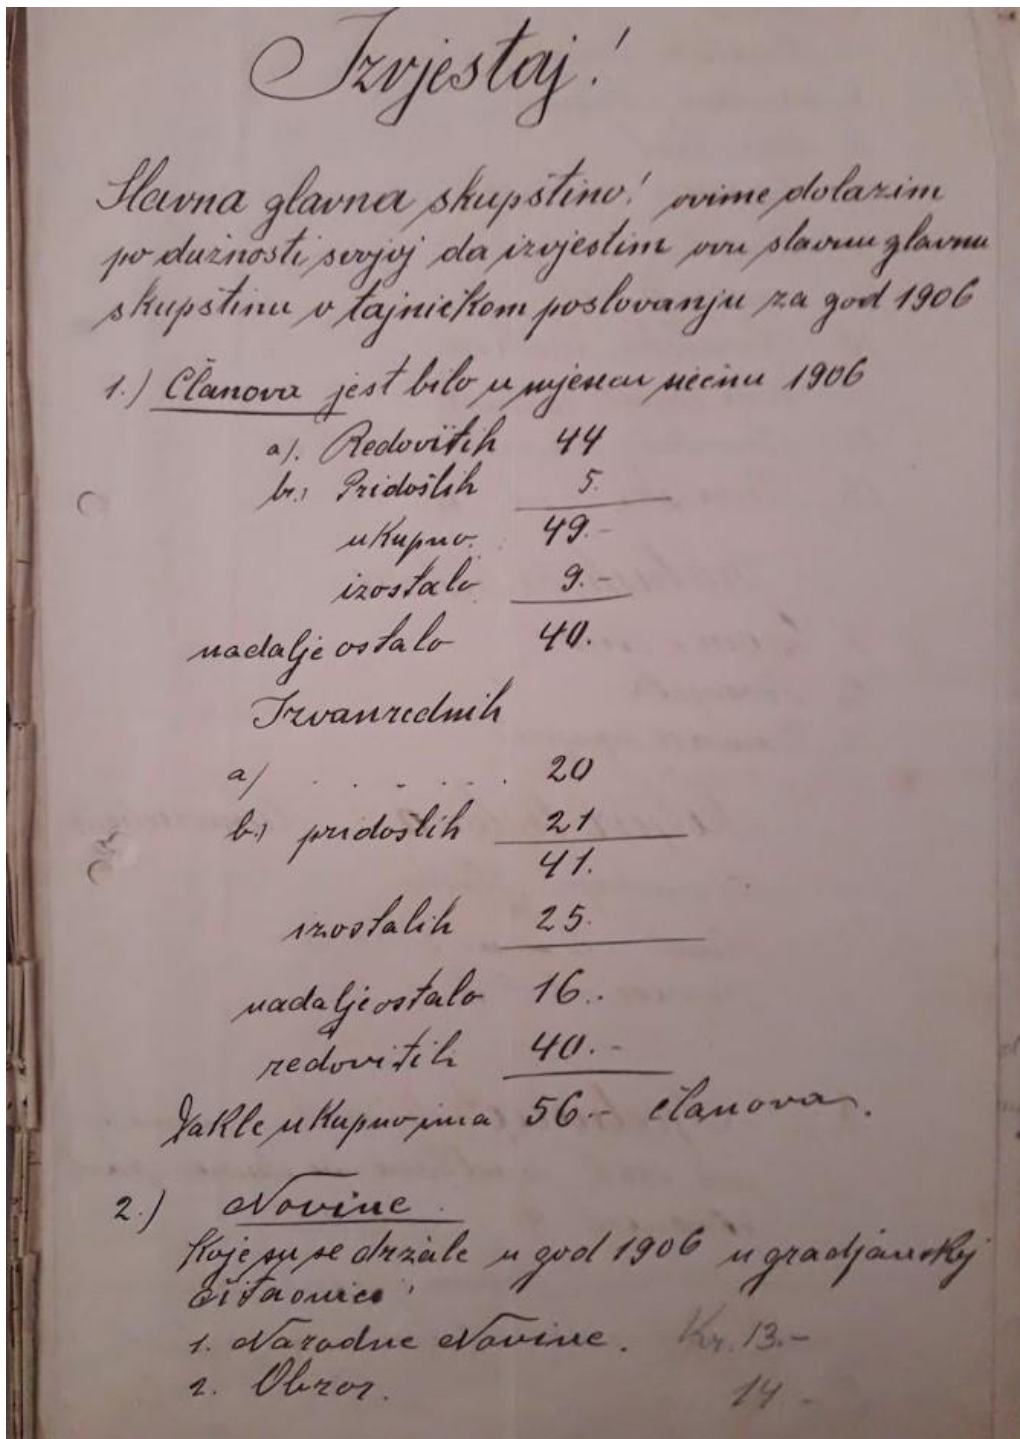 Izvjestaj!
Slavna glavna skupštino! ovime dolazim
po dužnosti svojoj da izvjestim ovu slavnu glavnu
skupštinu o tajničkom poslovanju za god 1906
1.) Članova jest bilo u mjesecu siečnu 1906
a). Redovitih 44
b.) Pridošlih 5.
ukupno. 49.-
izostalo 9.-
nadalje ostalo 40.
Izvanrednih
a) . . . . . . 20
b.) pridoslih 21
41.
izostalih 25.
nadalje ostalo 16..
redovitih 40.-
Dakle ukupno ima 56.- članova.
2.) Novine.
Koje su se držale u god 1906 u gradjanskoj
čitaonici
1. Narodne Novine. Kr. 13.-
2. Obzor. 14.-